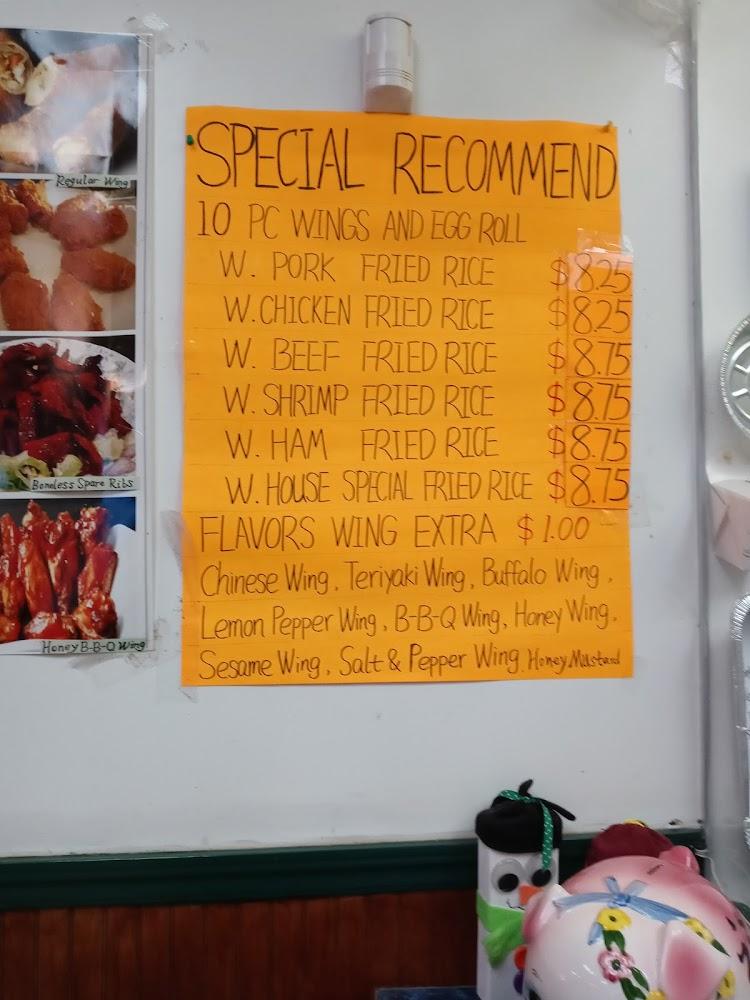 SPECIAL RECOMMEND
10 PC WINGS AND EGG ROLL
W. PORK FRIED RICE $8.25
W. CHICKEN FRIED RICE $8.25
W. BEEF FRIED RICE $8.75
W. SHRIMP FRIED RICE $8.75
W. HAM FRIED RICE $8.75
W. HOUSE SPECIAL FRIED RICE $8.75
FLAVORS WING EXTRA $1.00
Chinese Wing, Teriyaki Wing, Buffalo Wing,
Lemon Pepper Wing, B-B-Q Wing, Honey Wing,
Sesame Wing, Salt & Pepper Wing. Honey Mustard
Regular Wing
Boneless Spare Ribs
Honey B-B-Q Wing